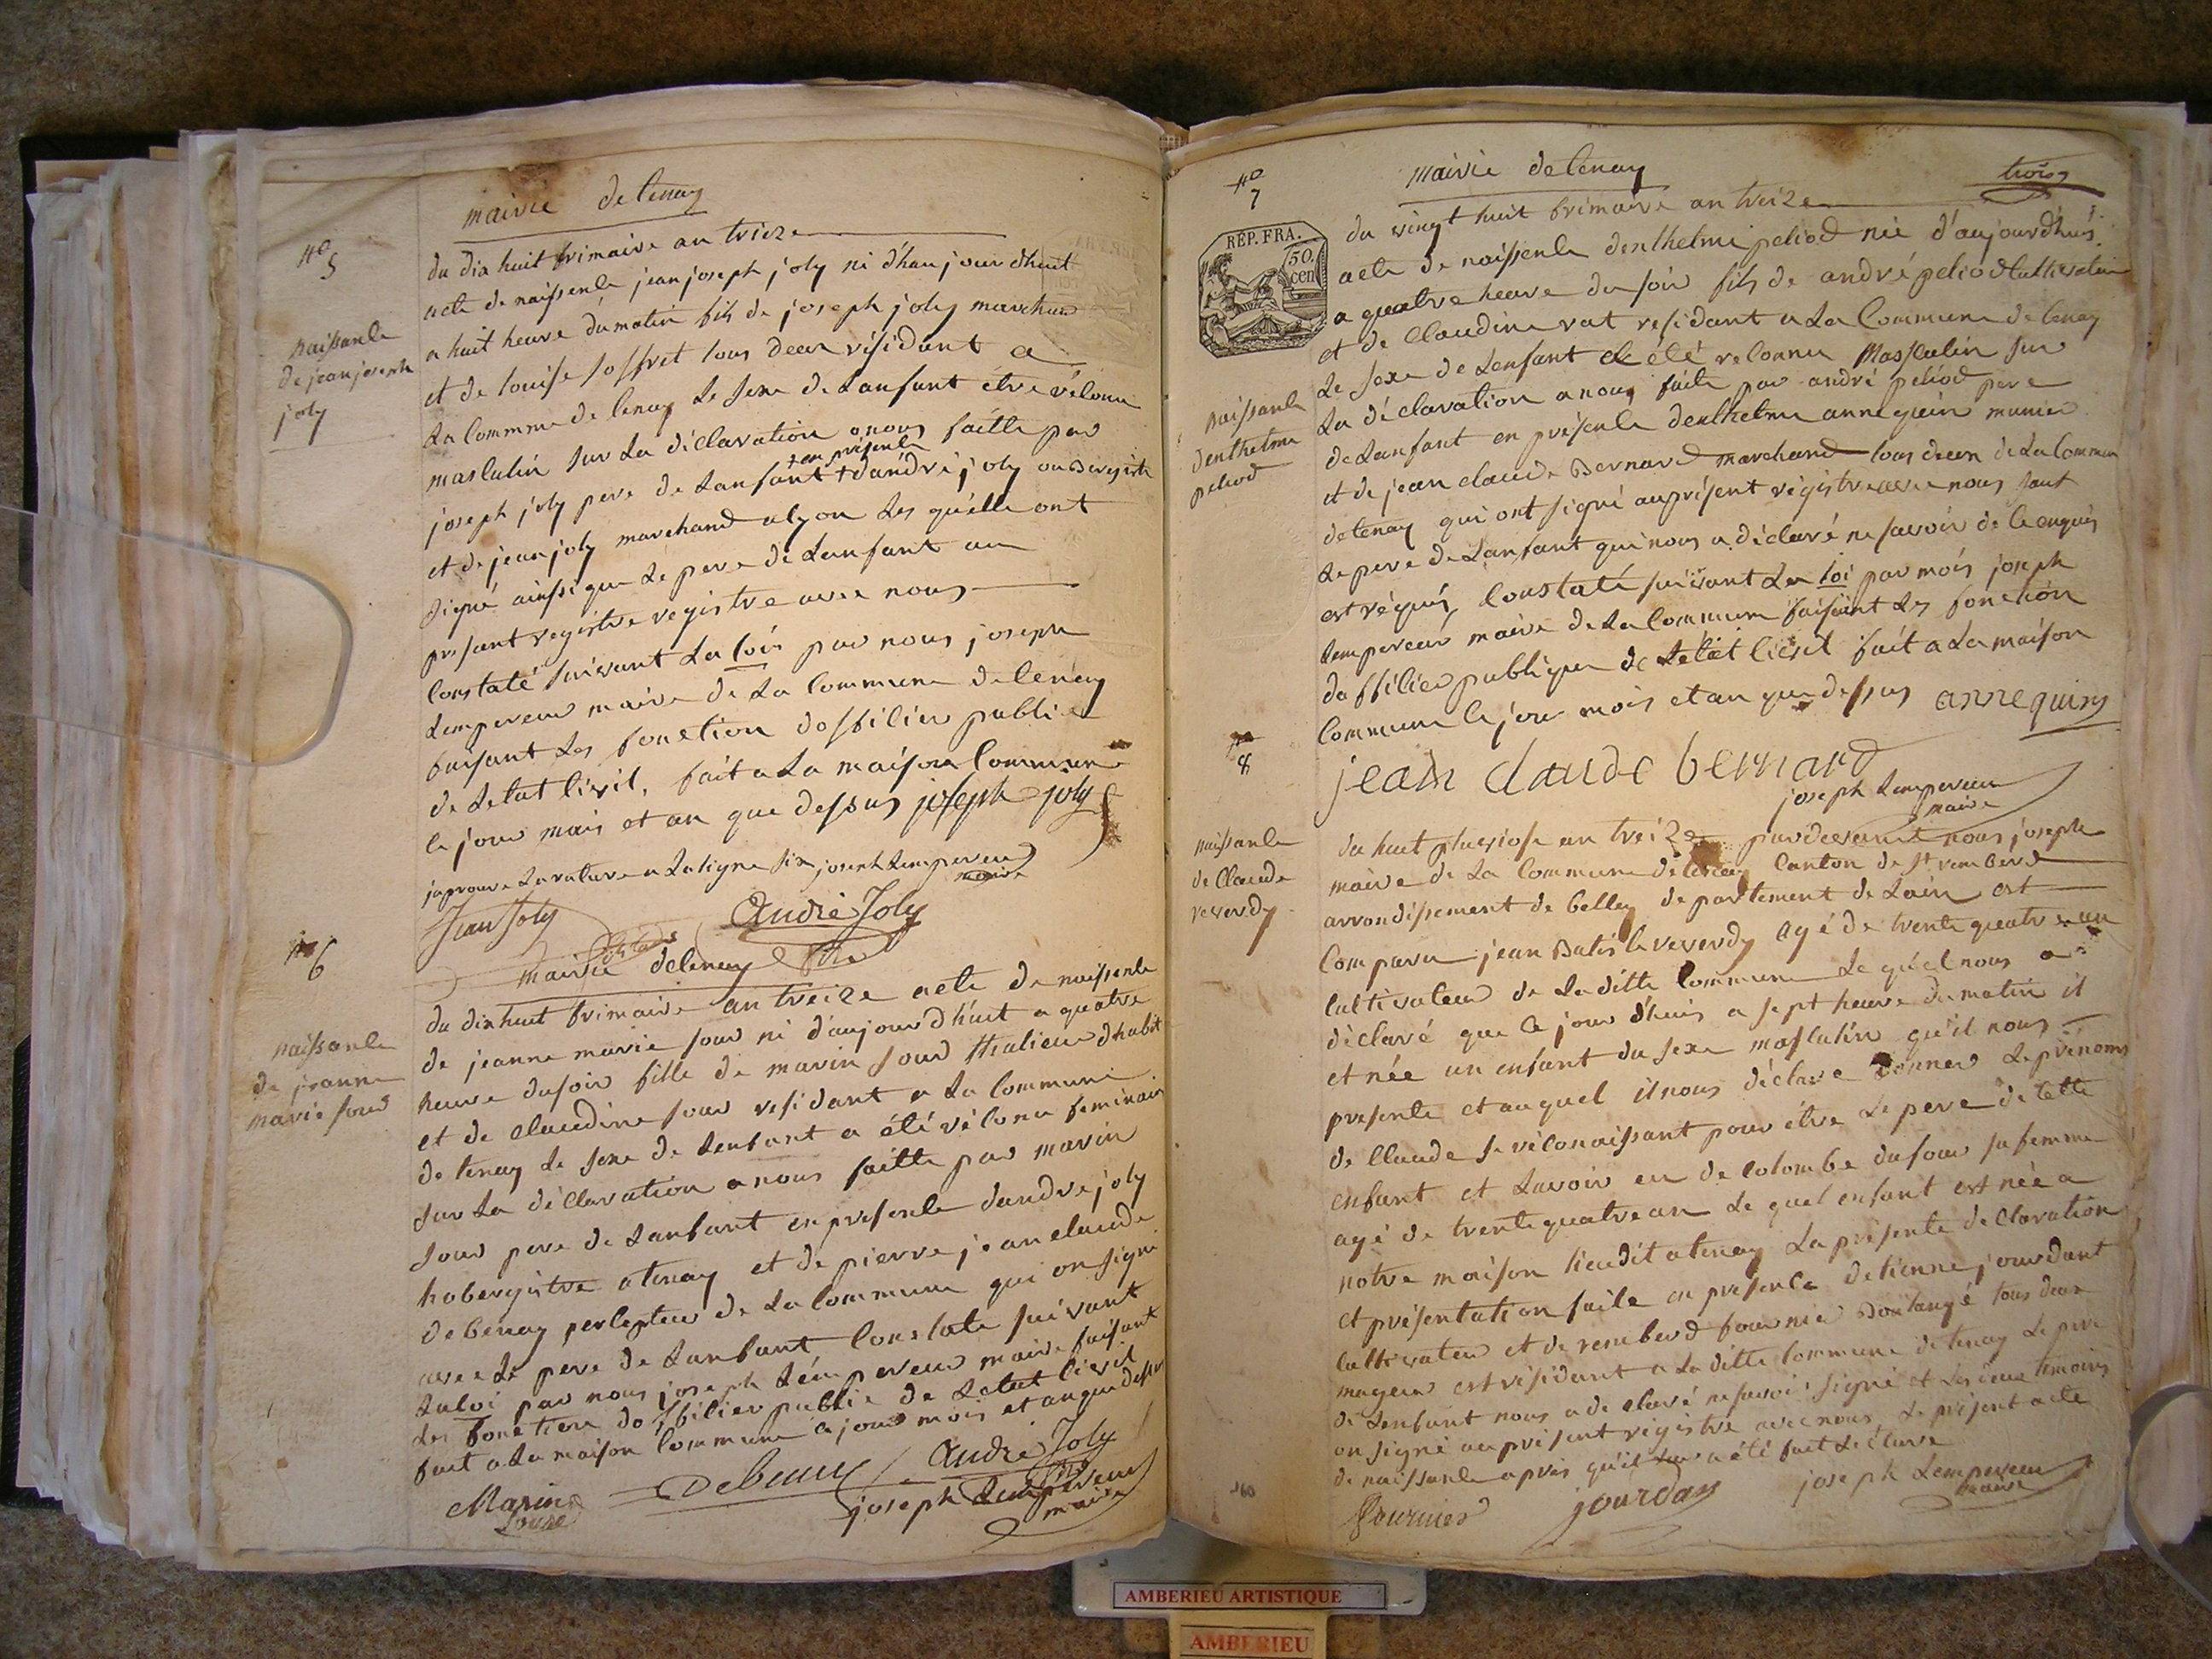 mairie de tenay
n° 5
du dix huit frimaire an treize
acte de naissenle jean joseph joly ni d'hau jour dhuit
a huit heure du matin fils de joseph joly marchand
naissanle
de jean joseph
joly
et de louise soffret tous deux résidant a
la commune de tenay le sexe de lansant etre réconu
masculin sur la déclaration a nous faitte par
joseph joly pere de lansant + en présenle d'andré joly
et de jean joly marchand a lyon les quélle ont
signé ainsi que le pere de lansant au
présant registre registre avec nous
constaté suivant la loi par nous joseph
lempereur maire de la commune de tenay
faisant les fonction dosfilier public
de letat livil, fait a la maison commune
le jour mais et an que dessus joseph joly
japrouve la rature a la ligne six joseph lempereur
maire
Jean Joly
André Joly
fils
n° 6
mairie de tenay
du dix huit frimaire an treize acte de naissenle
de jeanne marie sour ni d'aujourd'huit a quatre
heure du soir fille de marin sour thalieur dhabit
naissanle
de jeanne
marie sour
et de claudine sour residant a la commune
de tenay le sexe de lenfant a été réconu feminain
sur la déclaration a nous faitte par marin
sour pere de lanfant en presenle dandre joly
hobergistre a tenay et de pierre jean claude
debenay perlepteur de la commune qui on signé
avec le pere de lanfant constate suivant
la loi par nous joseph lémpereur maire faisant
les fonction dosfilier public de letat livil
fait a la maison commune le jour mois et an que dessus
Marin
André Joly
fils
joseph lempereur
maire
mairie de tenay
trois
n° 7
du vingt huit frimaire an treize
RÉP. FRA.
50.
cen
acte de naissenle denthelme peliod nie d'aujourd'hui
a quatre heure du soir fils de andré peliod lultivateur
et de claudine rat residant a la commune de tenay
le sexe de lenfant a été reconnu masculin sur
la déclaration a nous faite par andré peliod pere
naissanle
denthelme
peliod
de lanfant en présenle denthelme annequin munier
et de jean claude Bernard marchand tous deux de la commun
de tenay qui ont signé au présent régistre avec nous saut
le pere de lanfant qui nous a déclaré ne savoir de le enquis
et réquis, constaté suivant la loi par mois joseph
lempereur maire de la commune faisant les fonction
dosfilier publique de letat livil fait a la maison
commune le jour mois et an que dessus annequin
jean claude bernard
joseph lempereur
maire
n° 8
du huit pluviose an treize par devant nous joseph
maire de la commune de tenay canton de st rambert
arrondissement de belley departement de lain est
naissanle
de Claude
reverdy
comparu jean Batis le reverdy agé de trente quatre an
lultivateur de laditte commune le quel nous a
déclaré que le jour d'huis a sept heure du matin il
et née un enfant du sexe masculin qu'il nous
presente et auquel il nous déclare donner le prénoms
de Claude se réconaissant pour étre le pere de cette
enfant et lavoir eu de colombe dufour sa femme
agé de trente quatre an le quel enfant est née a
notre maison lieudit a tenay la présente declaration
et présentation faite en présence detienne jourdant
lultivateur et de rembert fournié Boulangé tous deux
mageur est résidant a la ditte commune de tenay le pere
de lenfant nous a declaré ne savoir signé et les deux temoins
on signé au présent régistre avec nous, le présent acte
de naissanle apres qu'il a été fait lecture
fournier
jourdan
joseph lempereur
maire
160
AMBERIEU ARTISTIQUE
AMBERIEU